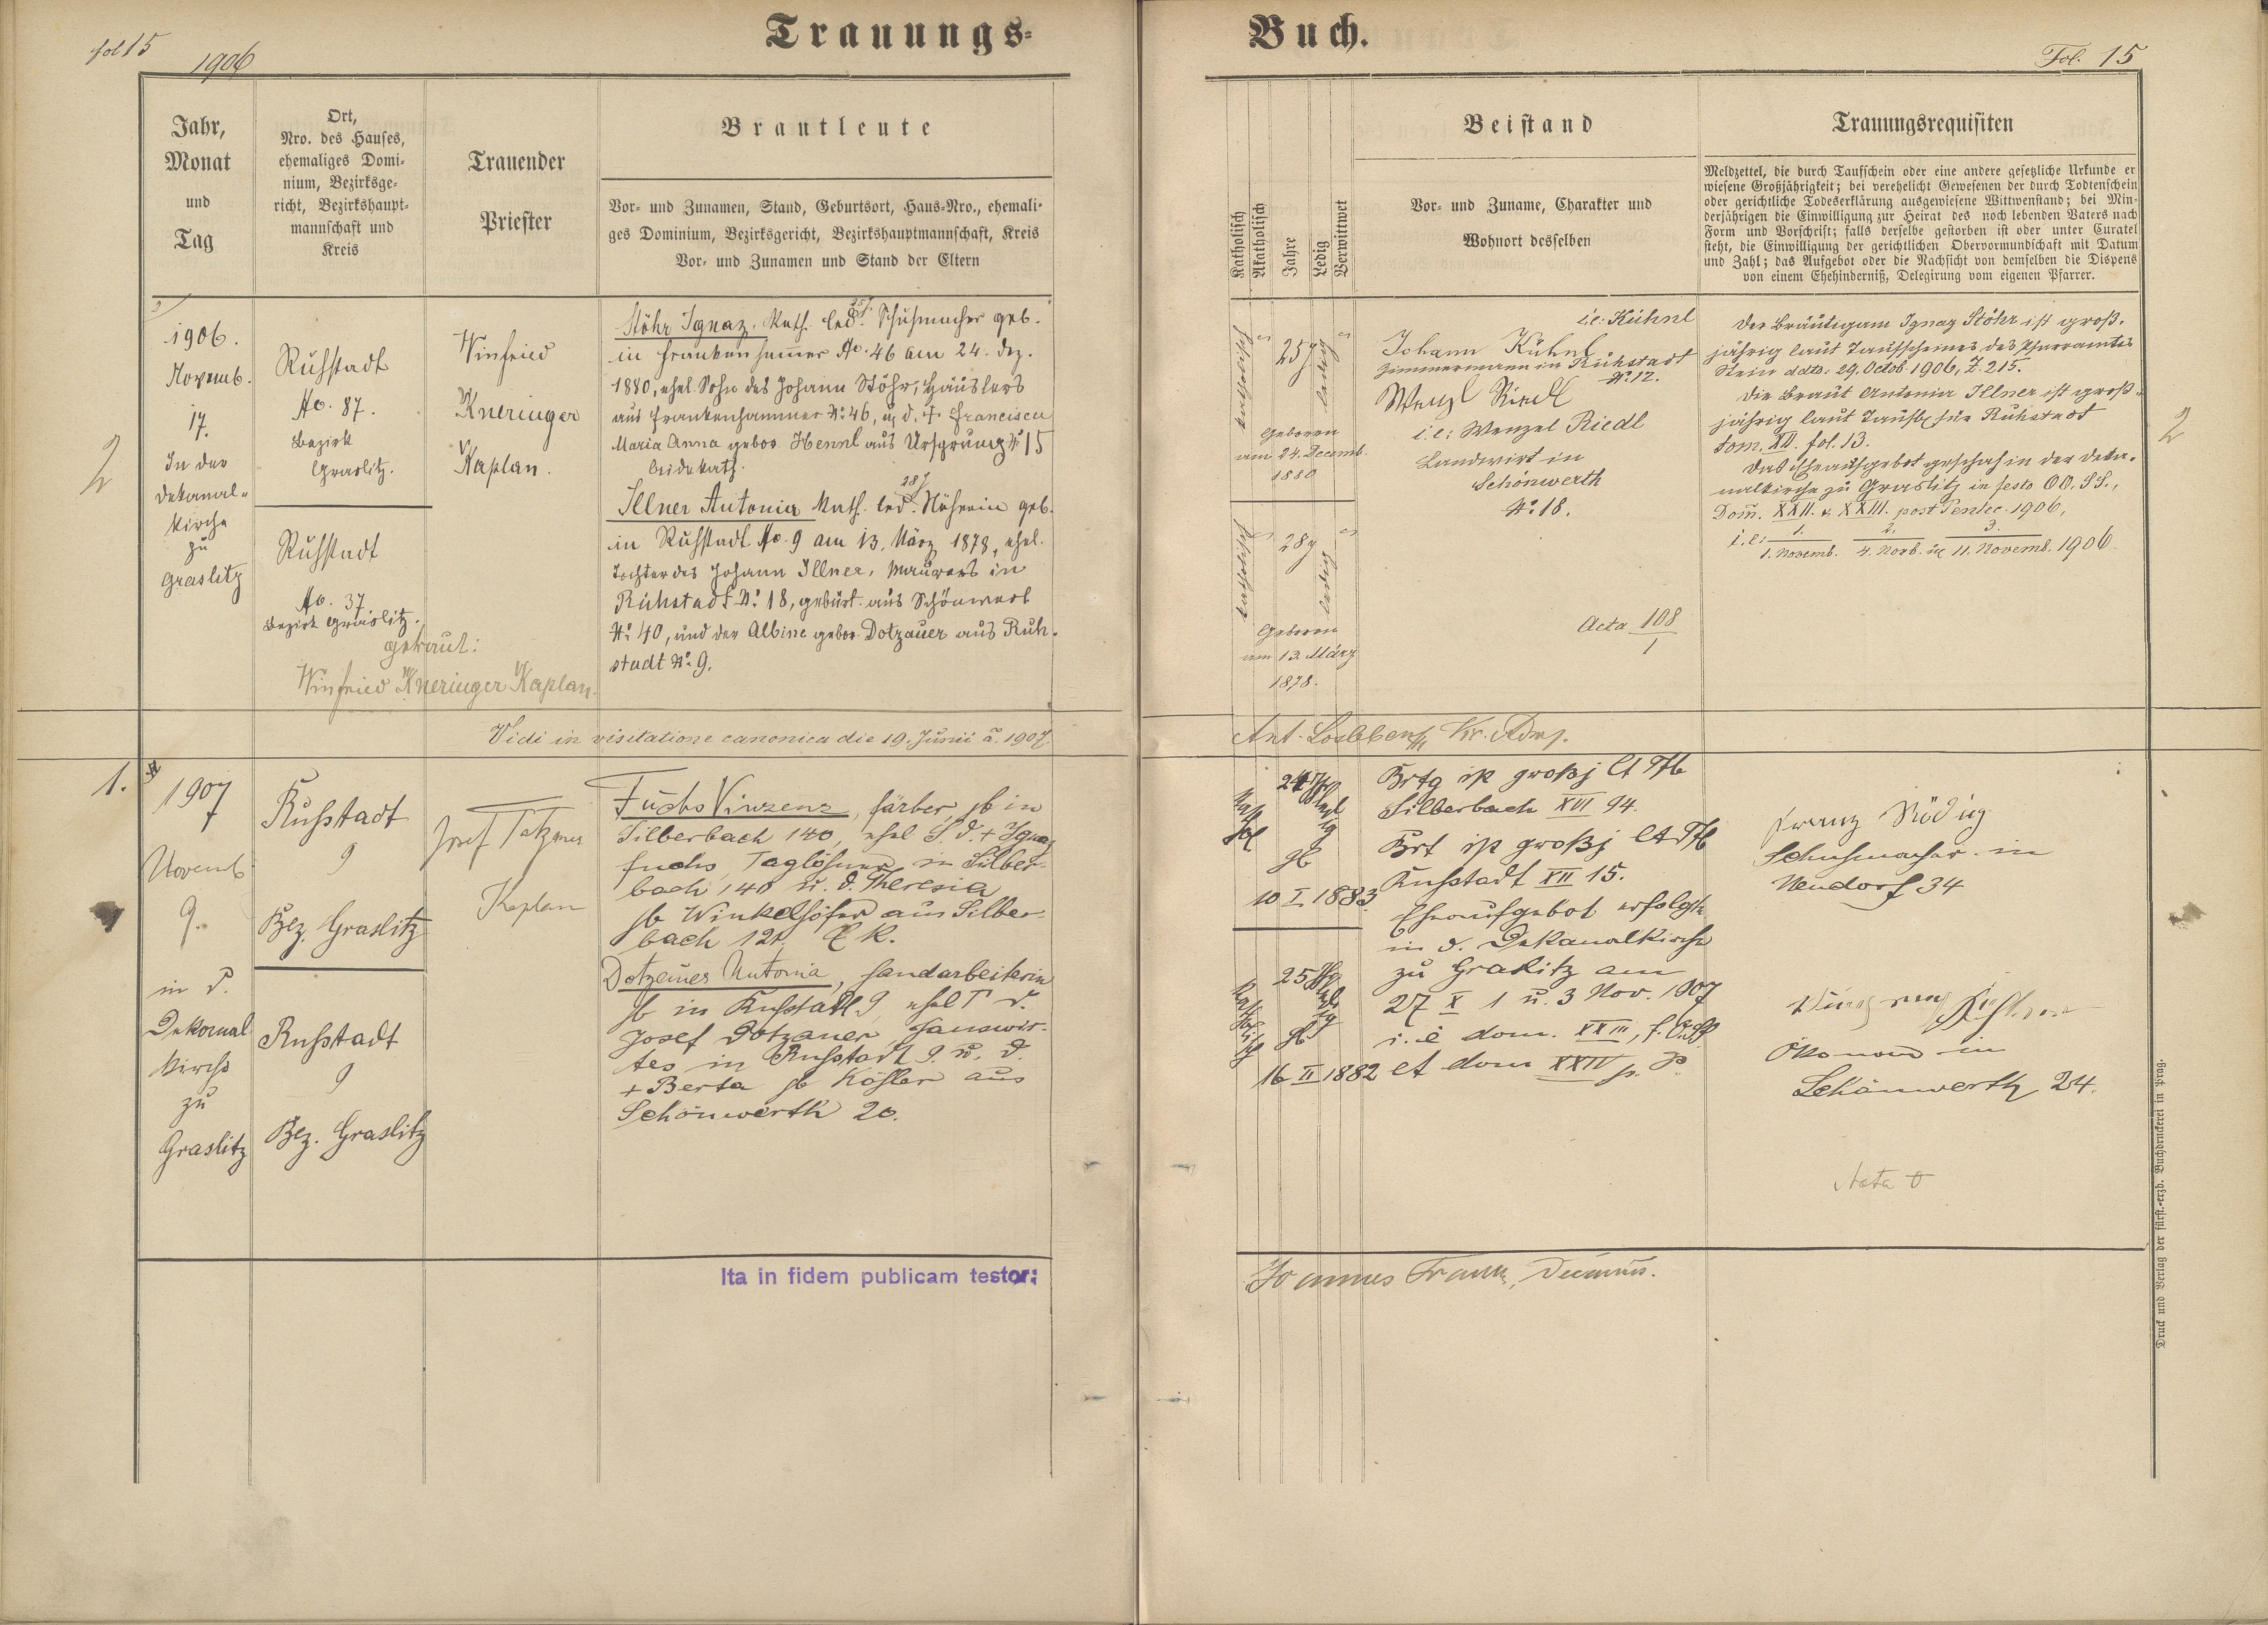 Trauungs-
Buch.
fol 15
1906
Fol. 15
Jahr,
Monat
und
Tag
Ort,
Nro. des Hauses,
ehemaliges Domi-
nium, Bezirksge-
richt, Bezirkshaupt-
mannschaft und
Kreis
Trauender
Priester
Brautleute
Vor- und Zunamen, Stand, Geburtsort, Haus-Nro., ehemali-
ges Dominium, Bezirksgericht, Bezirkshauptmannschaft, Kreis
Vor- und Zunamen und Stand der Eltern
Katholisch
Akatholisch
Jahre
Ledig
Verwittwet
Beistand
Vor- und Zuname, Charakter und
Wohnort desselben
Trauungsrequisiten
Meldzettel, die durch Taufschein oder eine andere gesetzliche Urkunde er
wiesene Großjährigkeit; bei verehelicht Gewesenen der durch Todtenschein
oder gerichtliche Todeserklärung ausgewiesene Wittwenstand; bei Min-
derjährigen die Einwilligung zur Heirat des noch lebenden Vaters nach
Form und Vorschrift; falls derselbe gestorben ist oder unter Curatel
steht, die Einwilligung der gerichtlichen Obervormundschaft mit Datum
und Zahl; das Aufgebot oder die Nachsicht von demselben die Dispens
von einem Ehehinderniß, Delegirung vom eigenen Pfarrer.
2
1906.
Novemb.
17.
In der
Dekanal-
kirche
zu
Graslitz
Ruhstadt
No. 87.
Bezirk
Graslitz.
Ruhstadt
No. 37
Bezirk Graslitz.
getraut:
Winfried Kneringer Kaplan.
Winfried
Kneringer
Kaplan.
Stöhr Ignaz, kath. led. 25 J. Schuhmacher geb.
in Frankenhammer No. 46 am 24. Dez.
1880, ehel. Sohn des Johann Stöhr, Häuslers
aus Frankenhammer No. 46, u. d. † Francisca
Maria Anna gebor. Hennl aus Ursprung No. 15
beide kath.
Illner Antonia kath. led. 28 J. Näherin geb.
in Ruhstadt No. 9 am 13. März 1878, ehel.
Tochter des Johann Illner, Maurers in
Ruhstadt No. 18, gebürt. aus Schönwert
No. 40, und der Albine gebor. Dotzauer aus Ruh-
stadt No. 9.
katholisch
25 J
ledig
Geboren
am 24. Decemb.
1880
katholisch
28 J
ledig
Geboren
am 13. März
1878.
i.e. Kühnl
Johann Kühnl
Zimmermann in Ruhstadt
No. 12.
Wenzl Riedl
i.e: Wenzel Riedl
Landwirt in
Schönwerth
No. 18.
Acta 108/1
Der Bräutigam Ignaz Stöhr ist groß-
jährig laut Taufscheines des Pfarramtes
Stein ddto. 29. Octob. 1906, Z. 215.
Die Braut Antonia Illner ist groß-
jährig laut Taufb. für Ruhstadt
tom. XII. fol. 13.
Das Eheaufgebot geschah in der Deka-
nalkirche zu Graslitz in festo OO. SS.,
Dom. XXII. & XXIII. post Pentec. 1906,
i.e: 1. 2. 3.
1. Novemb. 4. Novb. u. 11. Novemb. 1906.
2
Vidi in visitatione canonica die 19. Junii a. 1907
1.
1907
Novemb
9.
in d.
Dekanal
kirche
zu
Graslitz
Ruhstadt
9
Bez. Graslitz
Ruhstadt
9
Bez. Graslitz
Josef
Kaplan
Fuchs Vinzenz, Färber, gb in
Silberbach 140, ehel S. d. + Ignaz
Fuchs, Taglöhner in Silber-
bach 140 u. d. Theresia
gb Winkelhöfer aus Silber-
bach 121.
Dotzauer Antonia, Handarbeiterin
gb in Ruhstadt 9, ehel T d.
Josef Dotzauer, Hauswir-
tes in Ruhstadt 9 u. d.
+ Berta gb Köhler aus
Schönwerth 20.
gb
10 I 1883
25
gb
16 II 1882
Brtg ist großj lt Tfb
Silberbach XVI 94.
Brt ist großj lt Tfb
Ruhstadt XII 15.
Eheaufgebot erfolgte
in d. Dekanalkirche
zu Graslitz am
27 X 1 u. 3 Nov. 1907
i. e dom. XXIII, f. O.SS
et dom XXIV p. P.
Franz Rödig
Schuhmacher in
Neudorf 34
Ökonom in
Schönwerth 24.
Acta 0
Ita in fidem publicam testor:
Joannes
Druck und Verlag der fürst.-erzb. Buchdruckerei in Prag.